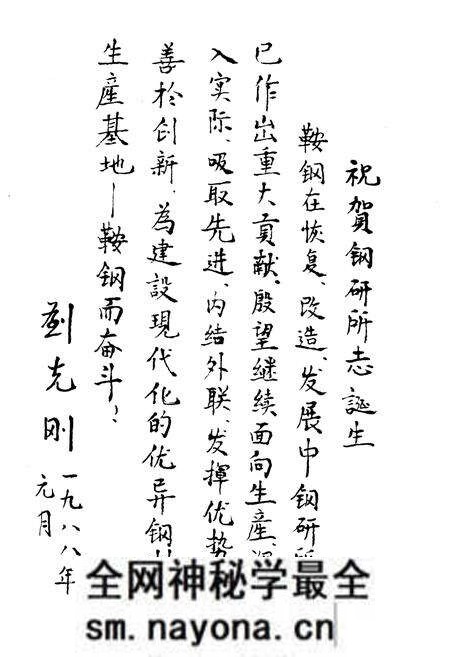 祝賀钢研所志誕生
鞍钢在恢复、改造、发展中钢研所
已作出重大貢献。殷望继续面向生產、深
入实际、吸取先进、内结外联、发揮优势
善於创新、為建設現代化的优异钢材
生產基地—鞍钢而奋斗！
劉克刚
一九八八年
元月
全网神秘学最全
sm.nayona.cn